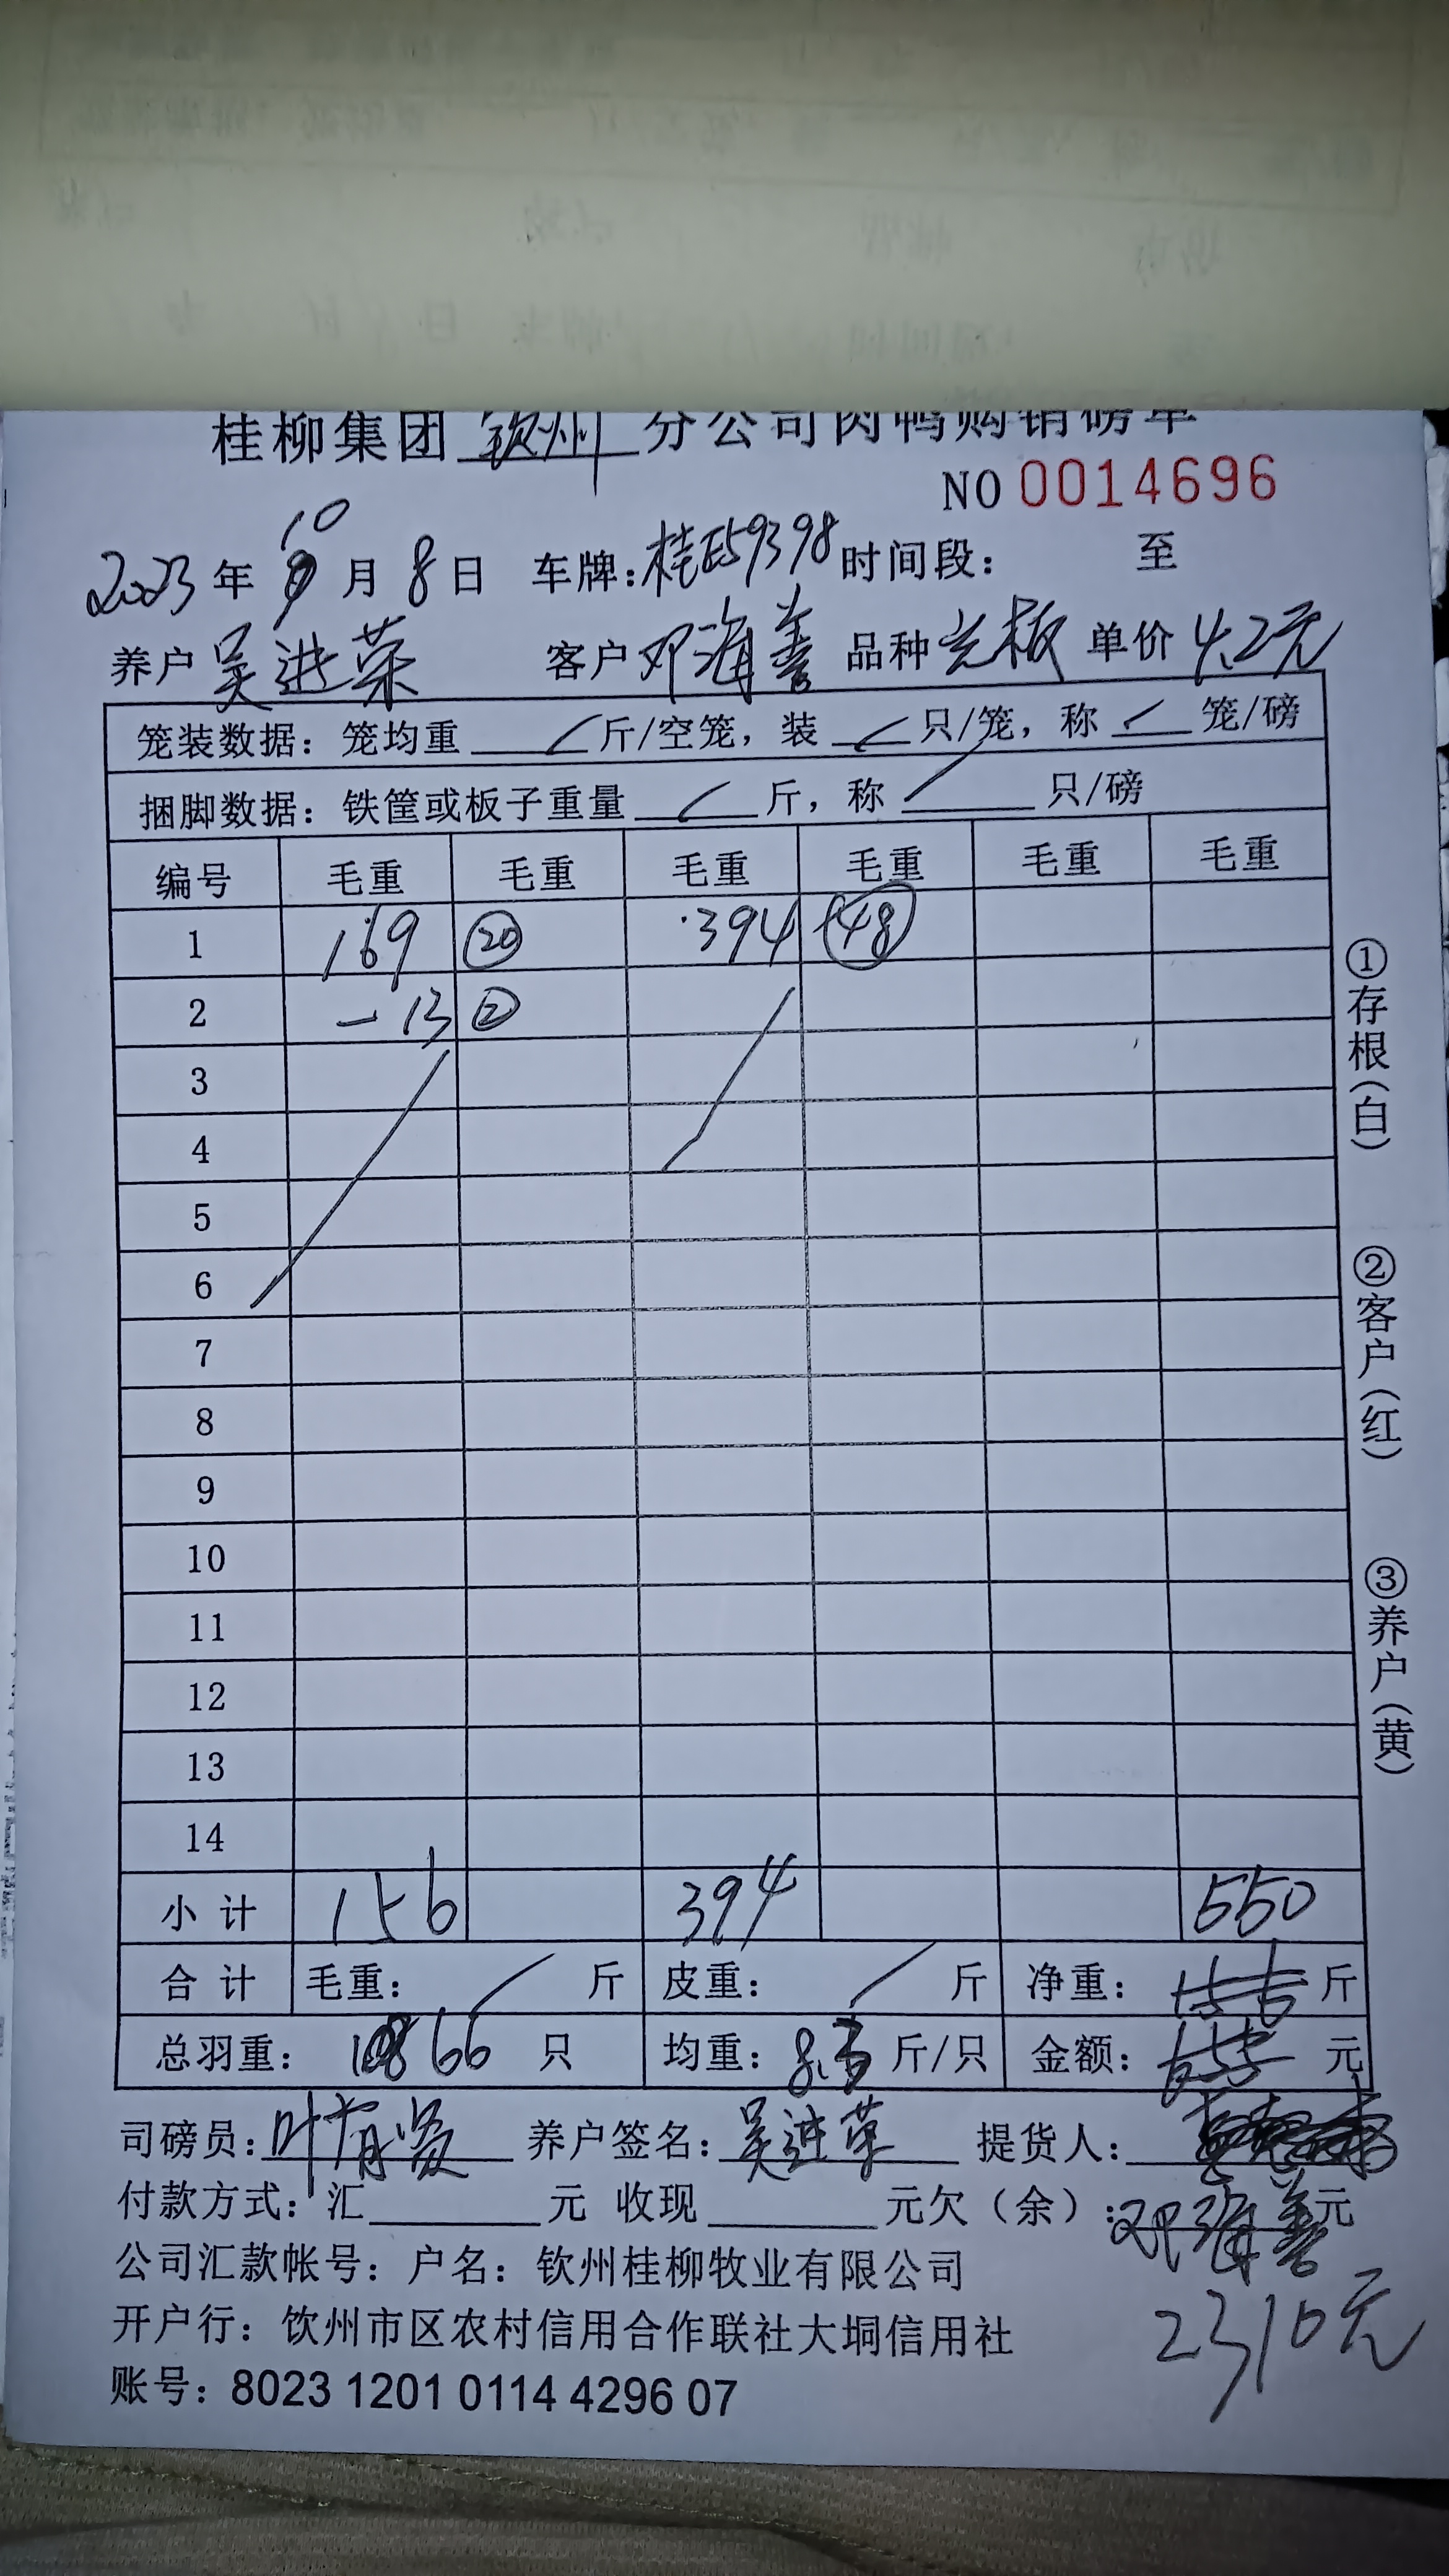 桂柳集团 钦州 分公司肉鸭购销磅单
NO 0014696
2023 年 10 月 8 日 车牌:桂E59398 时间段: 至
养户 吴进荣 客户 邓海善 品种 光板 单价 4.2元
笼装数据:笼均重 / 斤/空笼,装 / 只/笼,称 / 笼/磅
捆脚数据:铁筐或板子重量 / 斤,称 / 只/磅
编号 毛重 毛重 毛重 毛重 毛重 毛重
1 169 ⑳ 394 ㊽
2 -13 ②
3
4
5
6
7
8
9
10
11
12
13
14
小计 156 394 550
合计 毛重: / 斤 皮重: / 斤 净重: 斤
总羽重: 66 只 均重: 斤/只 金额: 元
司磅员: 养户签名:吴进荣 提货人:
付款方式:汇 元 收现 元欠(余):邓海善 元
公司汇款帐号:户名:钦州桂柳牧业有限公司
2310元
开户行:饮州市区农村信用合作联社大垌信用社
账号:8023 1201 0114 4296 07
①存根(白)
②客户(红)
③养户(黄)